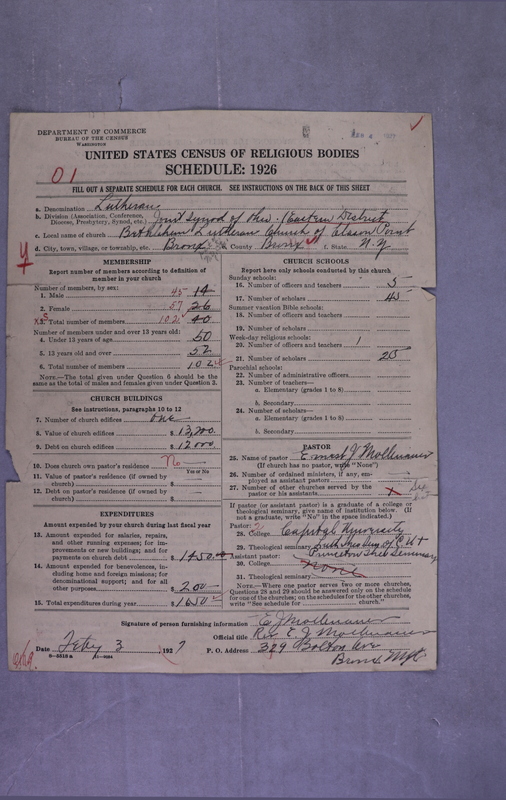 DEPARTMENT OF COMMERCE
BUREAU OF THE CENSUS
WASHINGTON
UNITED STATES CENSUS OF RELIGIOUS BODIES
SCHEDULE: 1926
01
FILL OUT A SEPARATE SCHEDULE FOR EACH CHURCH. SEE INSTRUCTIONS ON THE BACK OF THIS SHEET
a. Denomination Lutheran
b. Division (Association, Conference, Diocese, Presbytery, Synod, etc.) Joint Synod of Ohio. (Eastern District
c. Local name of church Bethlehem Lutheran Church of Clason Point
d. City, town, village, or township, etc. Bronx e. County Bronx f. State N.Y.
MEMBERSHIP
Report number of members according to definition of member in your church
Number of members, by sex:
1. Male 45 14
2. Female 57 26
3. Total number of members 102 40
Number of members under and over 13 years old:
4. Under 13 years of age 50
5. 13 years old and over 52
6. Total number of members 102
NOTE.—The total given under Question 6 should be the same as the total of males and females given under Question 3.
CHURCH BUILDINGS
See instructions, paragraphs 10 to 12
7. Number of church edifices one
8. Value of church edifices $ 13,200.
9. Debt on church edifices $ 12000
10. Does church own pastor's residence? No
Yes or No
11. Value of pastor's residence (if owned by church) $
12. Debt on pastor's residence (if owned by church) $
EXPENDITURES
Amount expended by your church during last fiscal year
13. Amount expended for salaries, repairs, and other running expenses; for improvements or new building; and for payments on church debt $ 1450.00
14. Amount expended for benevolences, including home and foreign missions; for denominational support; and for all other purposes $ 200
15. Total expenditures during year $ 1650
CHURCH SCHOOLS
Report here only schools conducted by this church
Sunday schools:
16. Number of officers and teachers 5
17. Number of scholars 45
Summer vacation Bible schools:
18. Number of officers and teachers
19. Number of scholars
Week-day religious schools:
20. Number of officers and teachers 1
21. Number of scholars 25
Parochial schools:
22. Number of administrative officers
23. Number of teachers—
a. Elementary (grades 1 to 8)
b. Secondary
24. Number of scholars—
a. Elementary (grades 1 to 8)
b. Secondary
PASTOR
25. Name of pastor Ernest J Mollenauer
(If church has no pastor, write "None")
26. Number of ordained ministers, if any, employed as assistant pastors
27. Number of other churches served by the pastor or his assistants
If pastor (or assistant pastor) is a graduate of a college or theological seminary, give name of institution below. (If not a graduate, write "No" in the space indicated.)
Pastor: 2
28. College Capital University
29. Theological seminary
Princeton Theo Seminary
Assistant pastor:
30. College None
31. Theological seminary
NOTE.—Where one pastor serves two or more churches, Questions 28 and 29 should be answered only on the schedule for one of the churches; on the schedules for the other churches, write "See schedule for church."
Signature of person furnishing information E J Mollenauer
Official title Rev E. J. Mollenauer
Date Feby 3 1927 P. O. Address 329 Bolton Ave
Bronx NYC